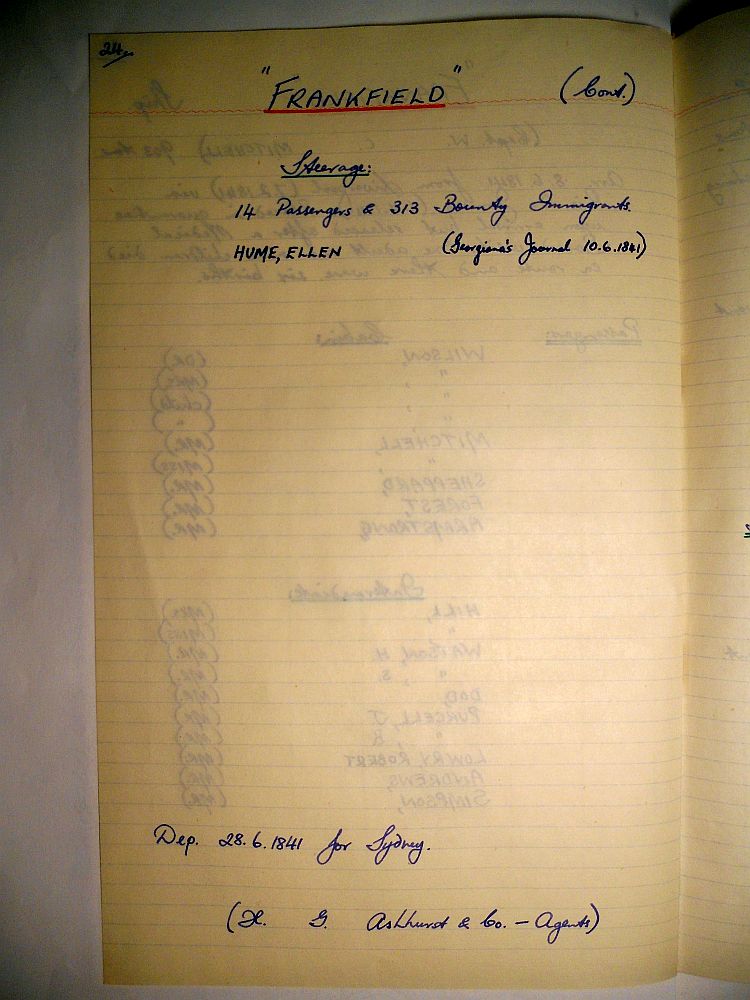 24.
"FRANKFIELD" (Cont.)
Steerage:
14 Passengers & 313 Bounty Immigrants.
HUME, ELLEN (Georgiana's Journal 10.6.1841)
Dep. 28.6.1841 for Sydney.
(H. G. Ashhurst & Co. – Agents)